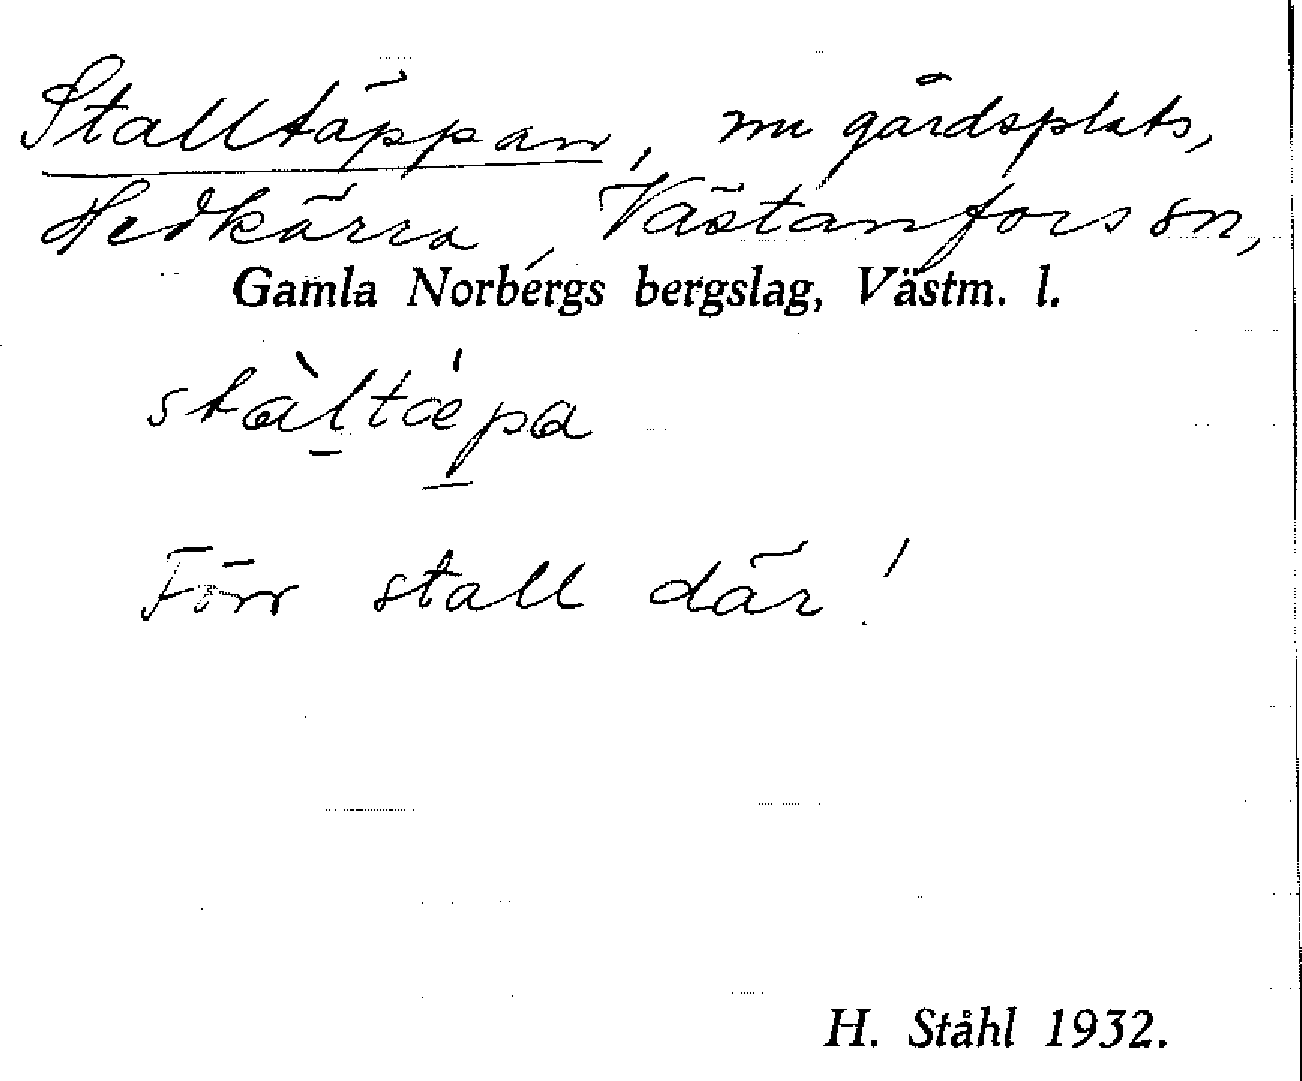 Stalltäppan, nu gårdsplats,
Hedkärra, Västanfors sn,
Gamla Norbergs bergslag, Västm. l.
stàl̲tǽp̲a
Förr stall där!
H. Ståhl 1932.